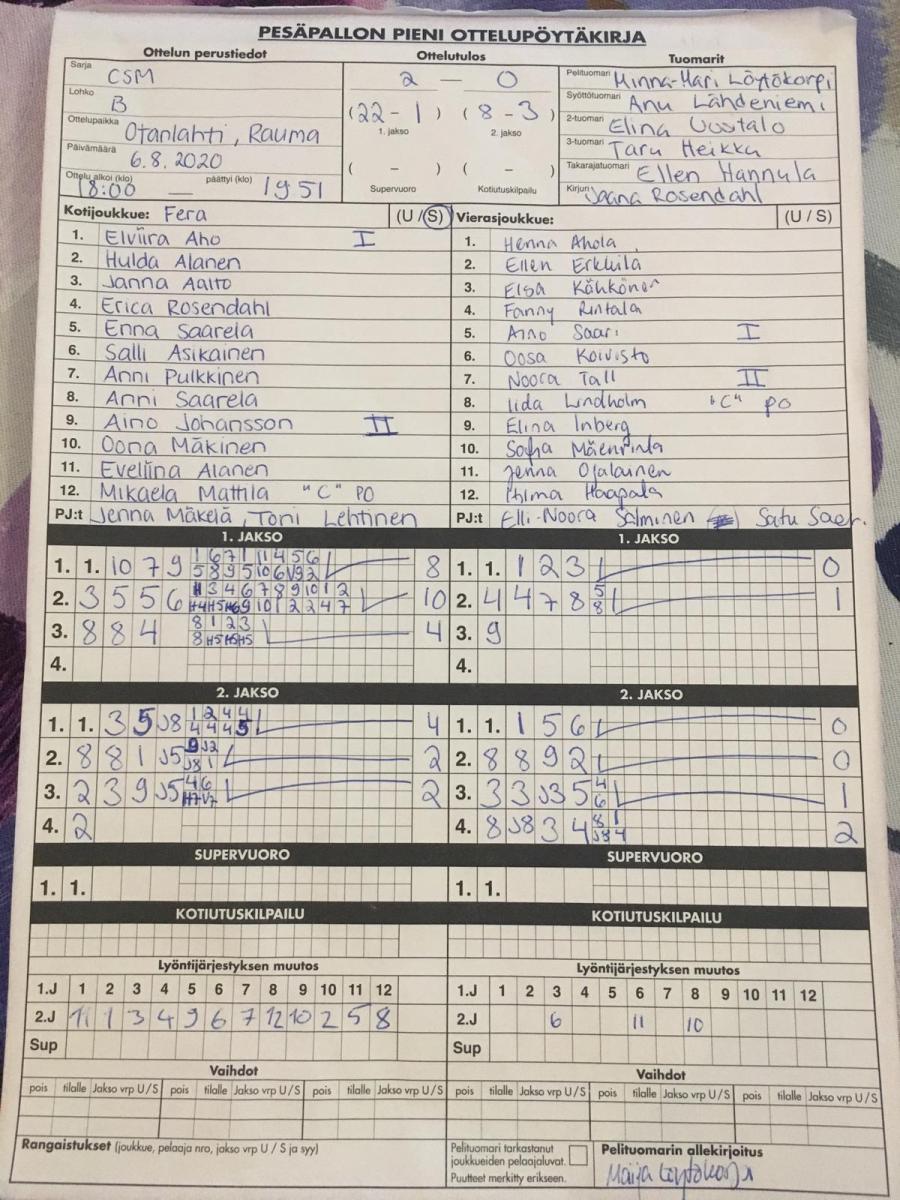 PESÄPALLON PIENI OTTELUPÖYTÄKIRJA
Ottelun perustiedot Ottelutulos Tuomarit
Sarja CSM
Lohko B
Ottelupaikka Otanlahti, Rauma
Päivämäärä 6.8.2020
Ottelu alkoi (klo) 18:00 — päättyi (klo) 1951
2 — 0
(22 - 1) (8 - 3)
1. jakso 2. jakso
( - ) ( - )
Supervuoro Kotiutuskilpailu
Pelituomari Minna-Mari Löytökorpi
Syöttötuomari Anu Lähdeniemi
2-tuomari Elina Uusitalo
3-tuomari Taru Heikka
Takarajatuomari Ellen Hannula
Kirjuri Jaana Rosendahl
Kotijoukkue: Fera (U / S)
1. Elviira Aho I
2. Hulda Alanen
3. Janna Aalto
4. Erica Rosendahl
5. Enna Saarela
6. Salli Asikainen
7. Anni Pulkkinen
8. Anni Saarela
9. Aino Johansson II
10. Oona Mäkinen
11. Eveliina Alanen
12. Mikaela Mattila "C" PO
PJ:t Jenna Mäkelä, Toni Lehtinen
Vierasjoukkue: (U / S)
1. Henna Ahola
2. Ellen Erkkilä
3. Elsa Kähkönen
4. Fanny Rintala
5. Aino Saari I
6. Oosa Koivisto
7. Noora Tall II
8. Iida Lindholm "C" PO
9. Elina Inberg
10. Mäenrinta
11. Jenna Ojalainen
12. Haapala
PJ:t Elli-Noora Salminen Satu
1. JAKSO
1. 1. 10 7 9 8
2. 3 5 5 6 10
3. 8 8 4 4
4.
1. JAKSO
1. 1. 1 2 3 0
2. 4 4 7 8 5 8 1
3. 9
4.
2. JAKSO
1. 1. 3 5 J8 4
2. 8 8 1 J5 2
3. 2 3 9 J5 2
4. 2
2. JAKSO
1. 1. 1 5 6 0
2. 8 8 9 2 0
3. 3 3 J3 5 4 6 1
4. 8 J8 3 4 8 1 J8 4 2
SUPERVUORO SUPERVUORO
1. 1. 1. 1.
KOTIUTUSKILPAILU KOTIUTUSKILPAILU
Lyöntijärjestyksen muutos
1.J 1 2 3 4 5 6 7 8 9 10 11 12
2.J 11 1 3 4 9 6 7 12 10 2 5 8
Sup
Lyöntijärjestyksen muutos
1.J 1 2 3 4 5 6 7 8 9 10 11 12
2.J 6 11 10
Sup
Vaihdot Vaihdot
pois tilalle Jakso vrp U/S pois tilalle Jakso vrp U/S pois tilalle Jakso vrp U/S
pois tilalle Jakso vrp U/S pois tilalle Jakso vrp U/S pois tilalle Jakso vrp U/S
Rangaistukset (joukkue, pelaaja nro, jakso vrp U / S ja syy)
Pelituomari tarkastanut
joukkueiden pelaajaluvat.
Puutteet merkitty erikseen.
Pelituomarin allekirjoitus